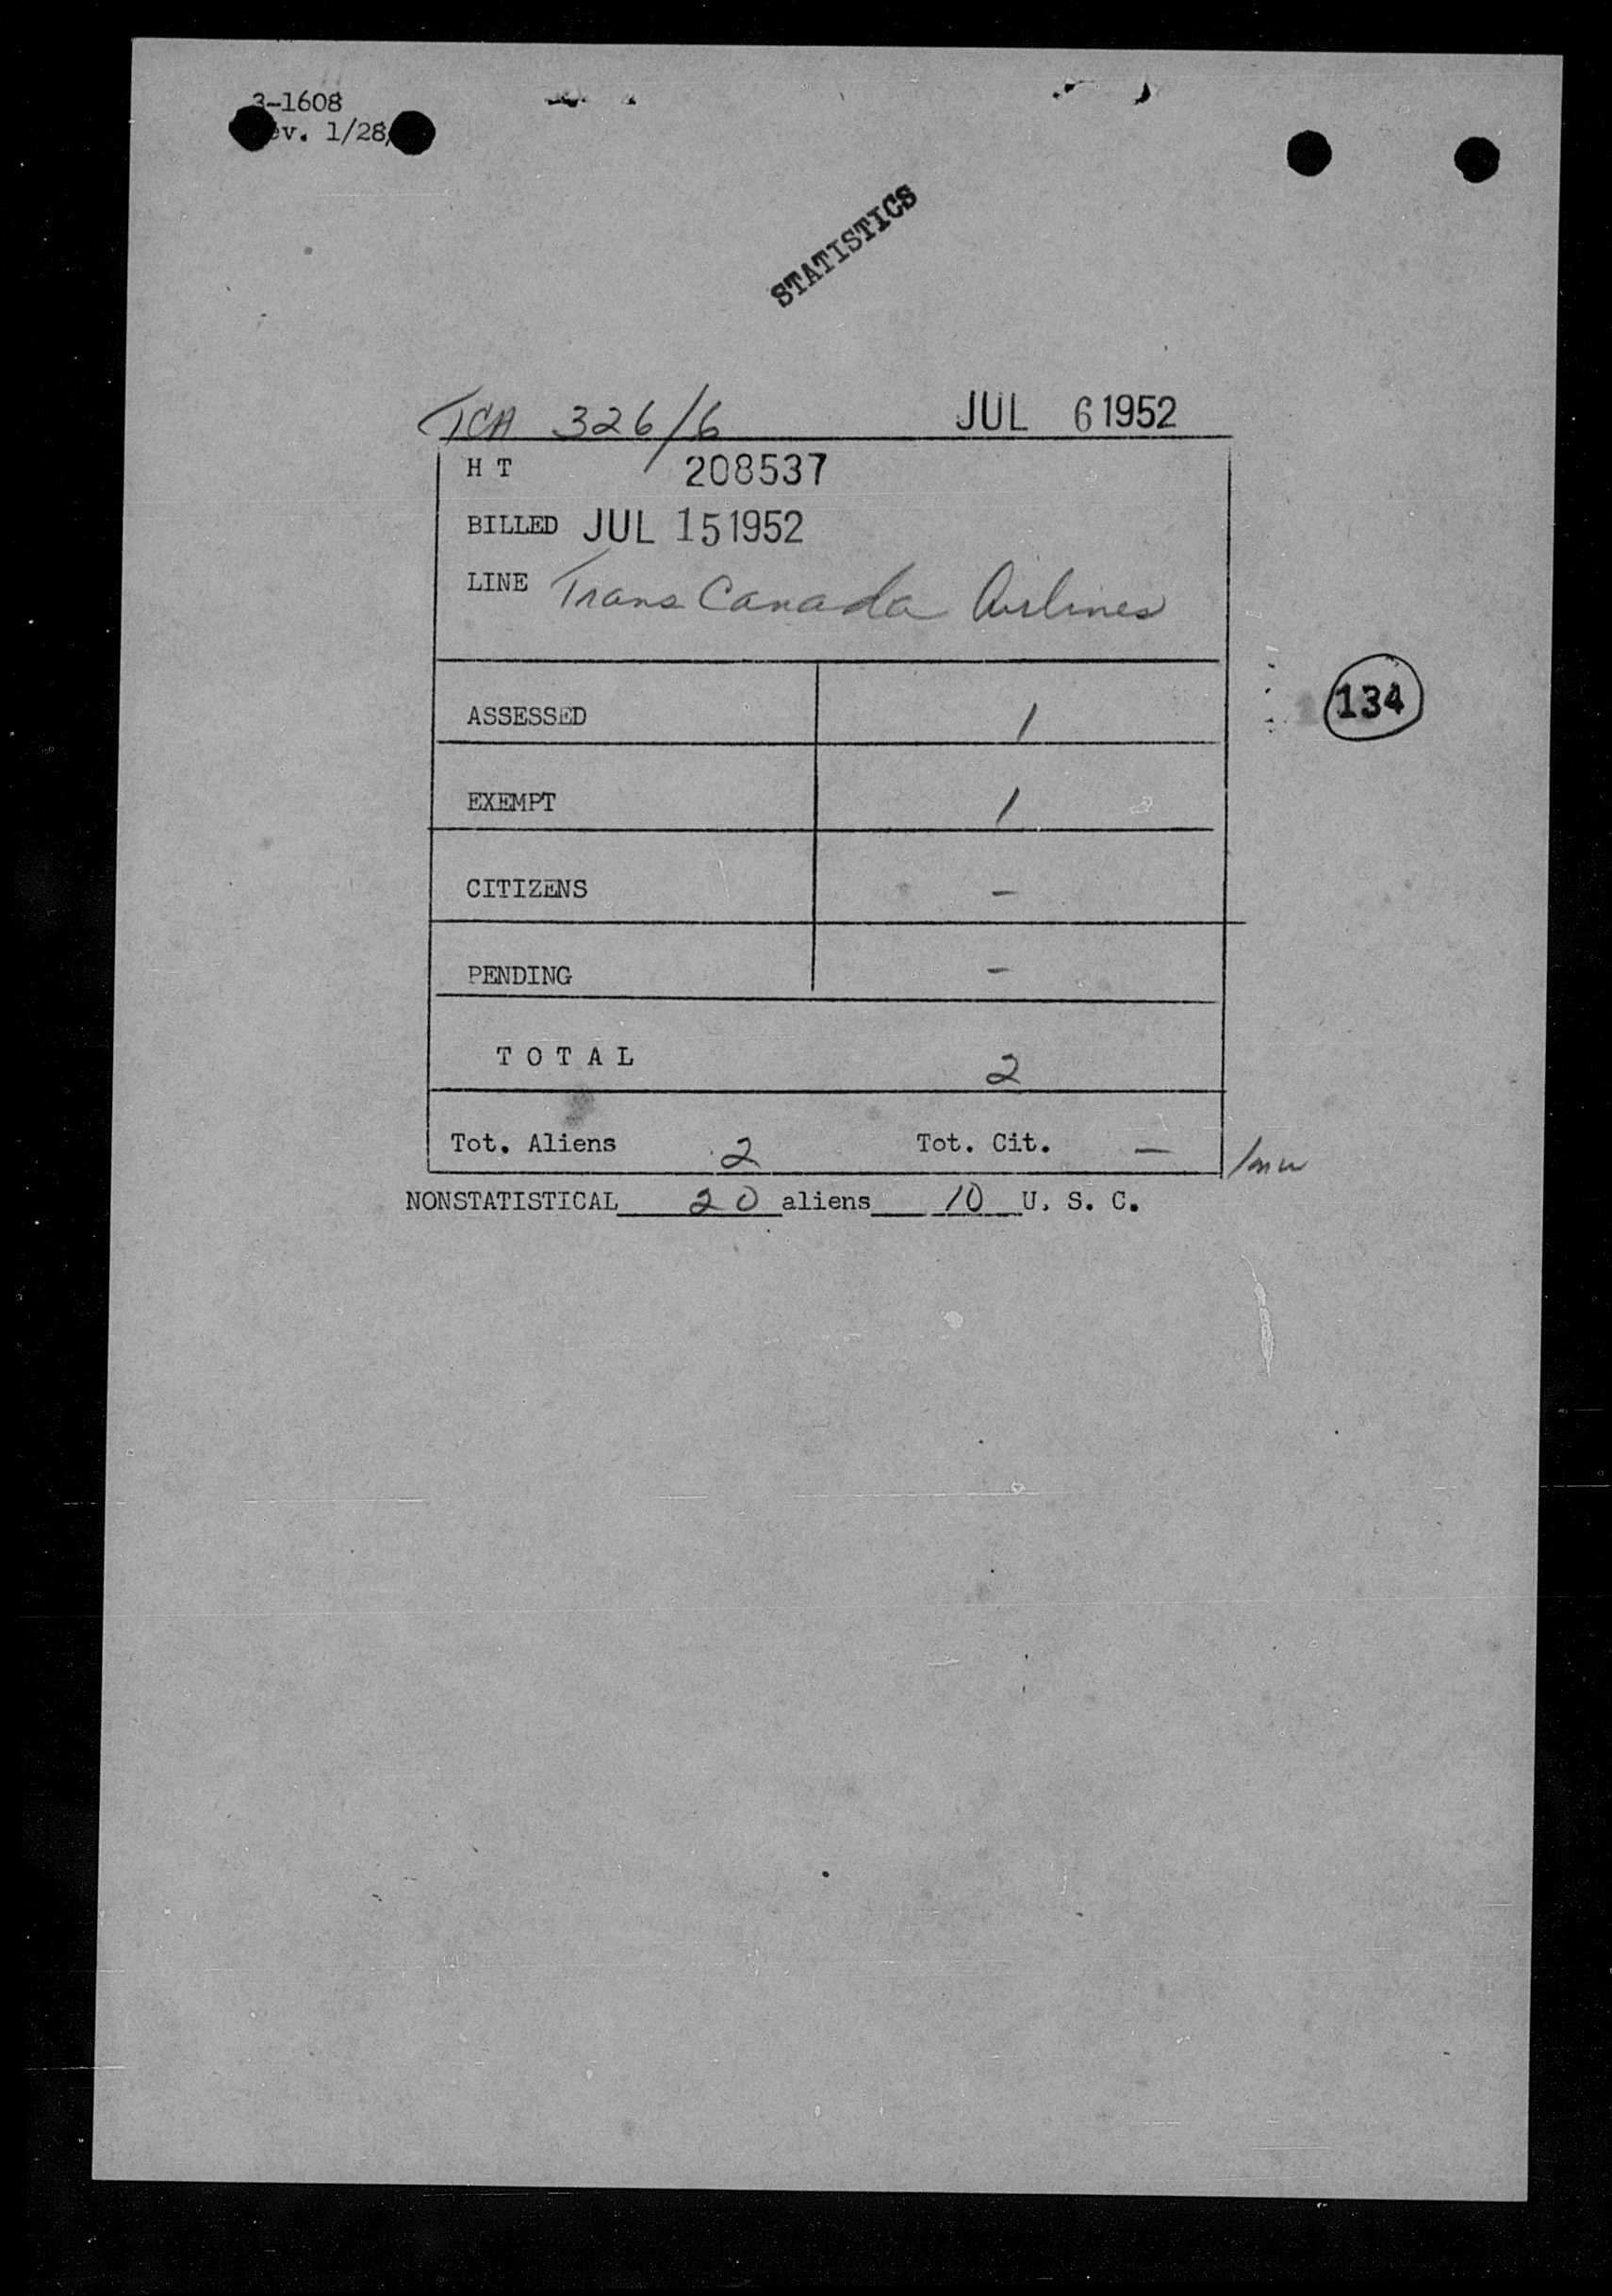 3-1608
ev. 1/28/
STATISTICS
TCA 326/6 JUL 6 1952
H T 208537
BILLED JUL 15 1952
LINE Trans Canada Airlines
ASSESSED 1
134
EXEMPT 1
CITIZENS -
PENDING -
T O T A L 2
Tot. Aliens 2 Tot. Cit. —
NONSTATISTICAL 20 aliens 10 U. S. C.